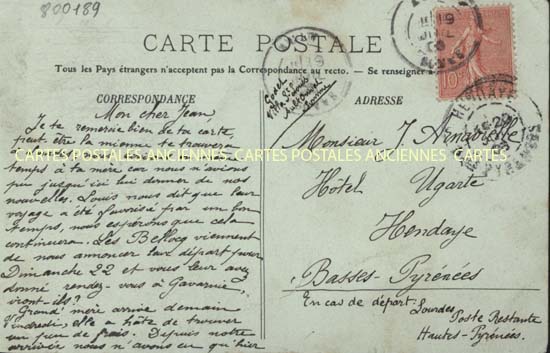 800189
CARTE POSTALE
Tous les Pays étrangers n'acceptent pas la Correspondance au recto. — Se renseigner à
CORRESPONDANCE
ADRESSE
Mon cher Jean,
Je te remercie bien de ta carte,
peut être la mienne te trouvera
CARTES POSTALES ANCIENNES CARTES POSTALES ANCIENNES CARTES POSTALES ANCIENNES
temps à ta mère car nous n'avions
pu jusqu'ici lui donner de nos
nouvelles. Louis nous dit que leur
voyage a été favorisé par un bon
temps, nous espérons que cela
continuera. Les Bellocq viennent
de nous annoncer leur départ pour
Dimanche 22 et vous leur avez
donné rendez-vous à Gavarnie,
iront-ils?
Grand' mère arrive demain
Vendredi, elle a hâte de trouver
un peu de frais. Depuis notre
arrivée nous n'avons eu qu'hier
Monsieur J
Hôtel Ugarte
Hendaye
Basses-Pyrénées
En cas de départ.
Lourdes
Poste Restante
Hautes-Pyrénées.
10